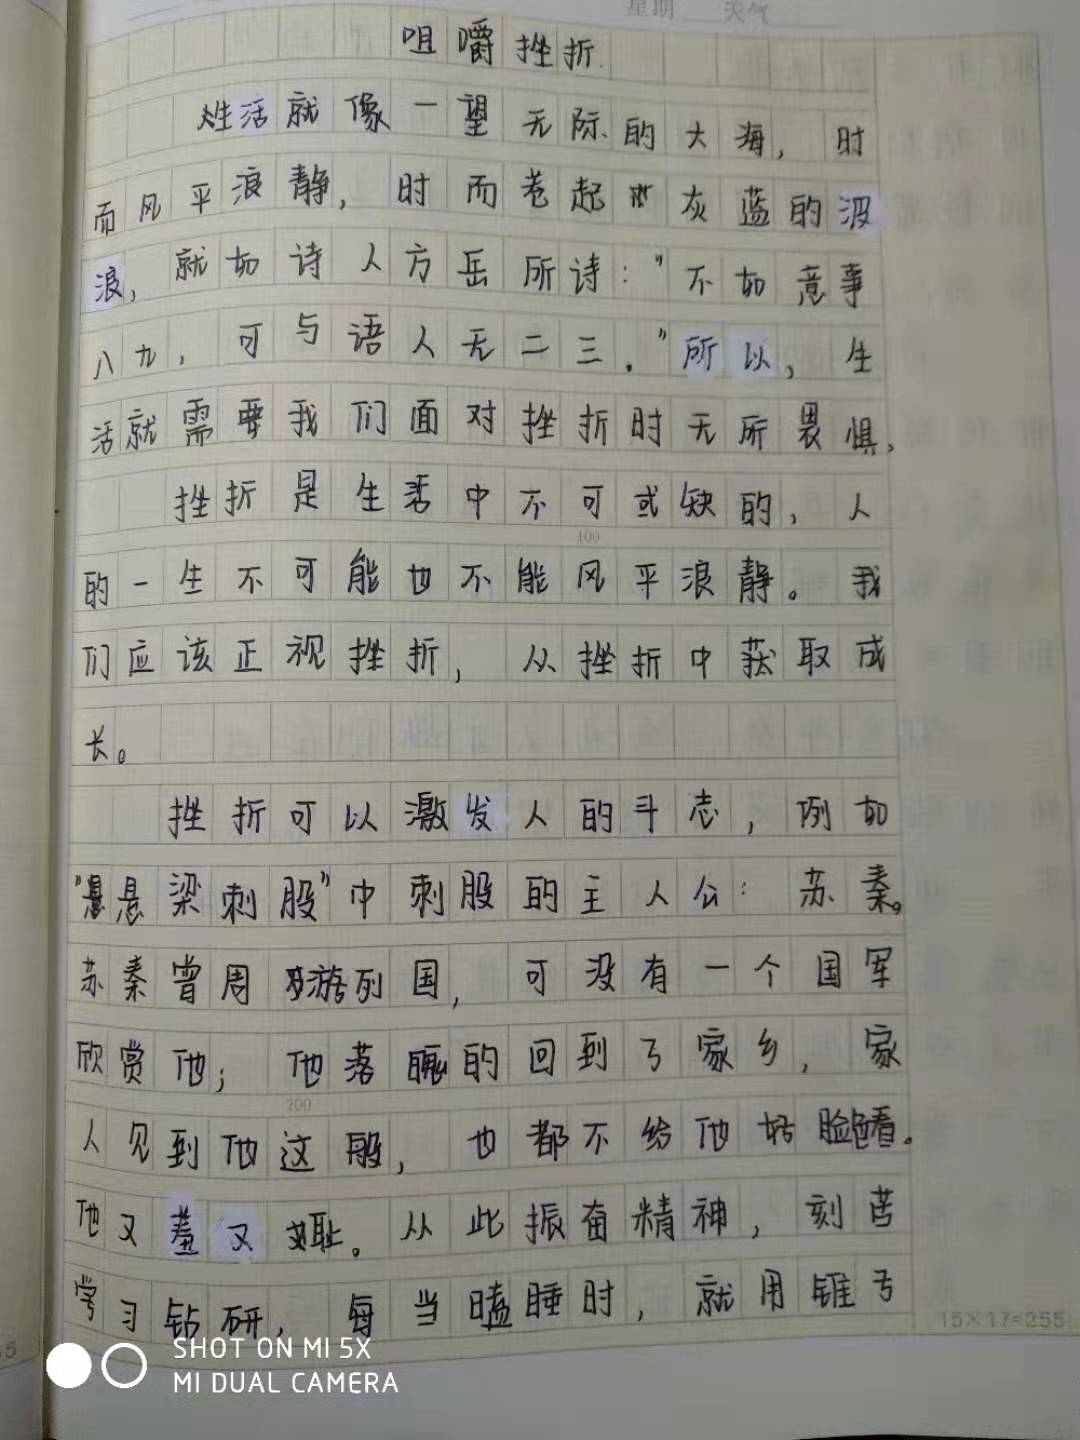 星期 天气
咀嚼挫折
生活就像一望无际的大海，时
而风平浪静，时而卷起灰蓝的波
浪，就如诗人方岳所诗："不如意事
八九，可与语人无二三．"所以，生
活就需要我们面对挫折时无所畏惧，
挫折是生活中不可或缺的，人
100
的一生不可能也不能风平浪静。我
们应该正视挫折，从挫折中获取成
长。
挫折可以激发人的斗志，例如
"悬梁刺股"中刺股的主人公：苏秦。
苏秦曾周游列国，可没有一个国军
欣赏他；他落魄的回到了家乡，家
200
人见到他这般，也都不给他好脸色看。
他又羞又耻。从此振奋精神，刻苦
学习钻研，每当瞌睡时，就用锥子
15×17=255
SHOT ON MI 5X
MI DUAL CAMERA